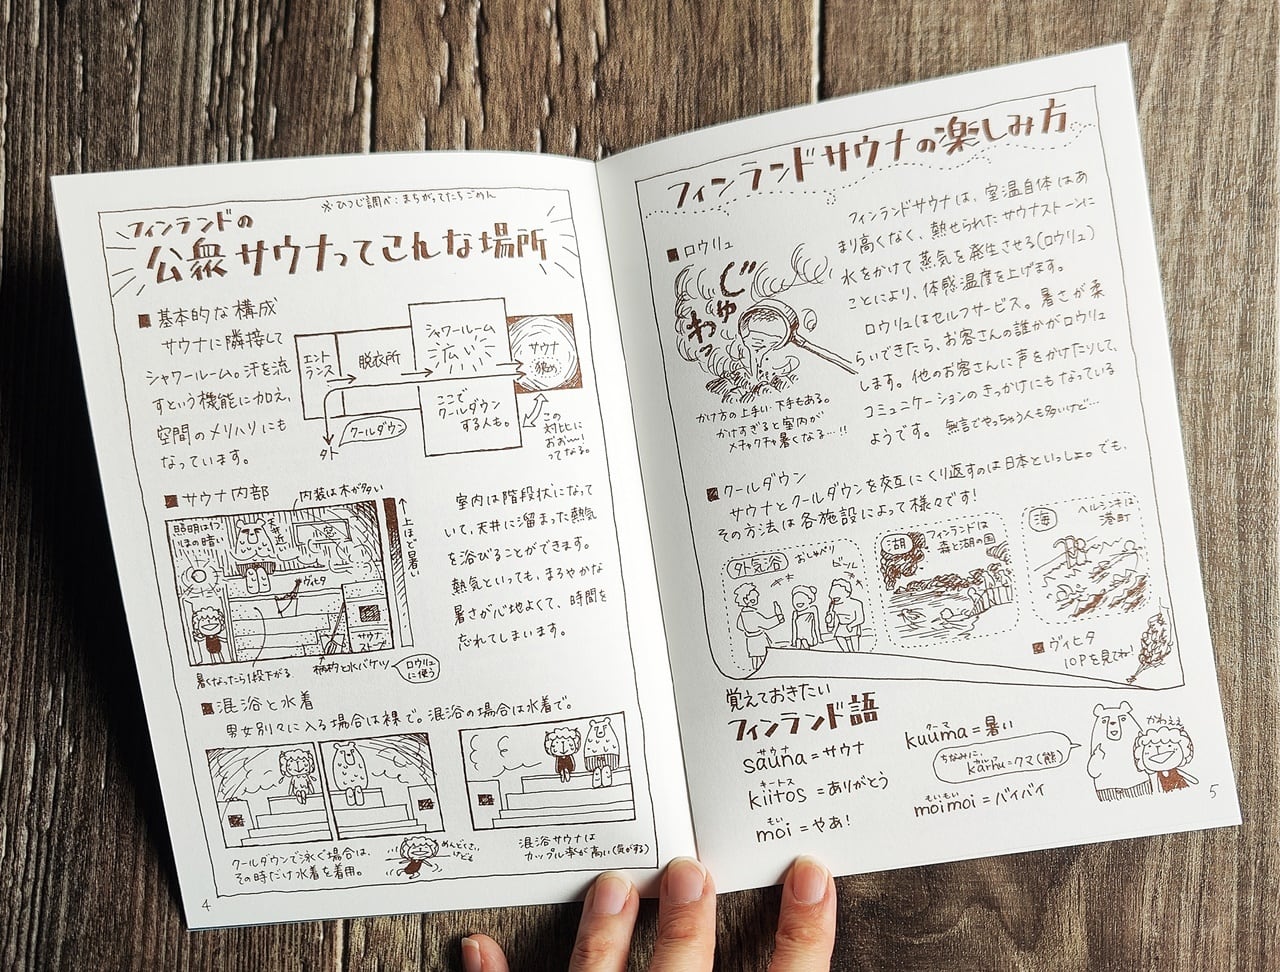 ※ひつじ調べ:まちがってたらごめん
フィンランドの
公衆サウナってこんな場所
■基本的な構成
サウナに隣接して
シャワールーム。汗を流
すという機能に加え、
空間のメリハリにも
なっています。
エント
ランス
脱衣所
シャワールーム
広い
サウナ
狭め
ここで
クールダウン
する人も。
クールダウン
外
この
対比に
おお〜!
ってなる。
■サウナ内部
内装は木が多い
照明は1つ
ほの暗い
天井近い
小窓
ヴィヒタ
サウナ
ストーブ
上ほど暑い
暑くなったら1段下がる
柄杓と水バケツ
ロウリュ
に使う
室内は階段状になって
いて、天井に溜まった熱気
を浴びることができます。
熱気といっても、まろやかな
暑さが心地よくて、時間を
忘れてしまいます。
■混浴と水着
男女別々に入る場合は裸で。混浴の場合は水着で。
クールダウンで泳ぐ場合は、
その時だけ水着を着用。
めんどくさい
けども
混浴サウナは
カップル率が高い(気がする)
4
フィンランドサウナの楽しみ方
■ロウリュ
じゅわっ
かけ方の上手い下手もある。
かけすぎると室内が
メチャクチャ暑くなる…!!
フィンランドサウナは、室温自体はあ
まり高くなく、熱せられたサウナストーンに
水をかけて蒸気を発生させる(ロウリュ)
ことにより、体感温度を上げます。
ロウリュはセルフサービス。暑さが柔
らいできたら、お客さんの誰かがロウリュ
します。他のお客さんに声をかけたりして、
コミュニケーションのきっかけにもなっている
ようです。無言でやっちゃう人も多いけど…
■クールダウン
サウナとクールダウンを交互にくり返すのは日本といっしょ。でも、
その方法は各施設によって様々です!
外気浴
おしゃべり
ビール
湖
フィンランドは
森と湖の国
海
ヘルシンキは
港町
■ヴィヒタ
10Pを見てね!
覚えておきたい
フィンランド語
サウナ
sauna=サウナ
キートス
kiitos=ありがとう
もい
moi=やぁ!
クーマ
kuuma=暑い
ちなみに、
karhu=クマ(熊)
もいもい
moimoi=バイバイ
かわええ
5